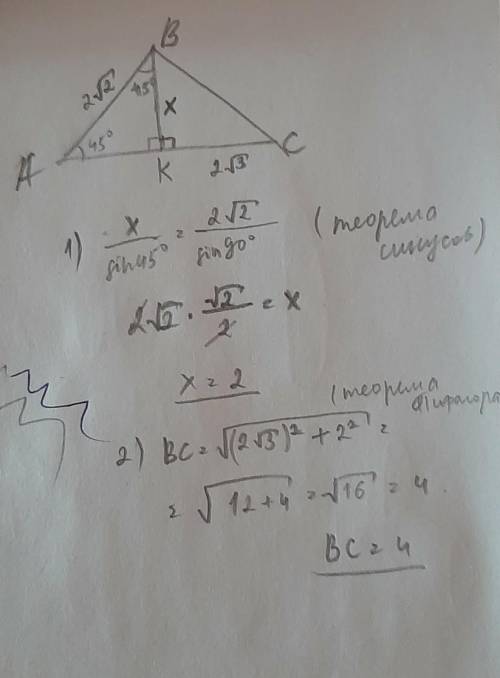 B
2√2
45°
x
45°
A
K
2√3
C
1) x / sin45° = 2√2 / sin90° (теорема синусов)
2√2 · √2/2 = x
x = 2
(теорема
2) BC = √((2√3)² + 2²) =
= √(12+4) = √16 = 4.
BC = 4